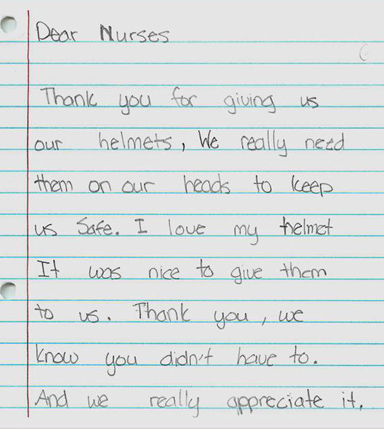 Dear Nurses
Thank you for giving us
our helmets, We really need
them on our heads to keep
us safe. I love my helmet
It was nice to give them
to us. Thank you, we
know you didn't have to.
And we really appreciate it.